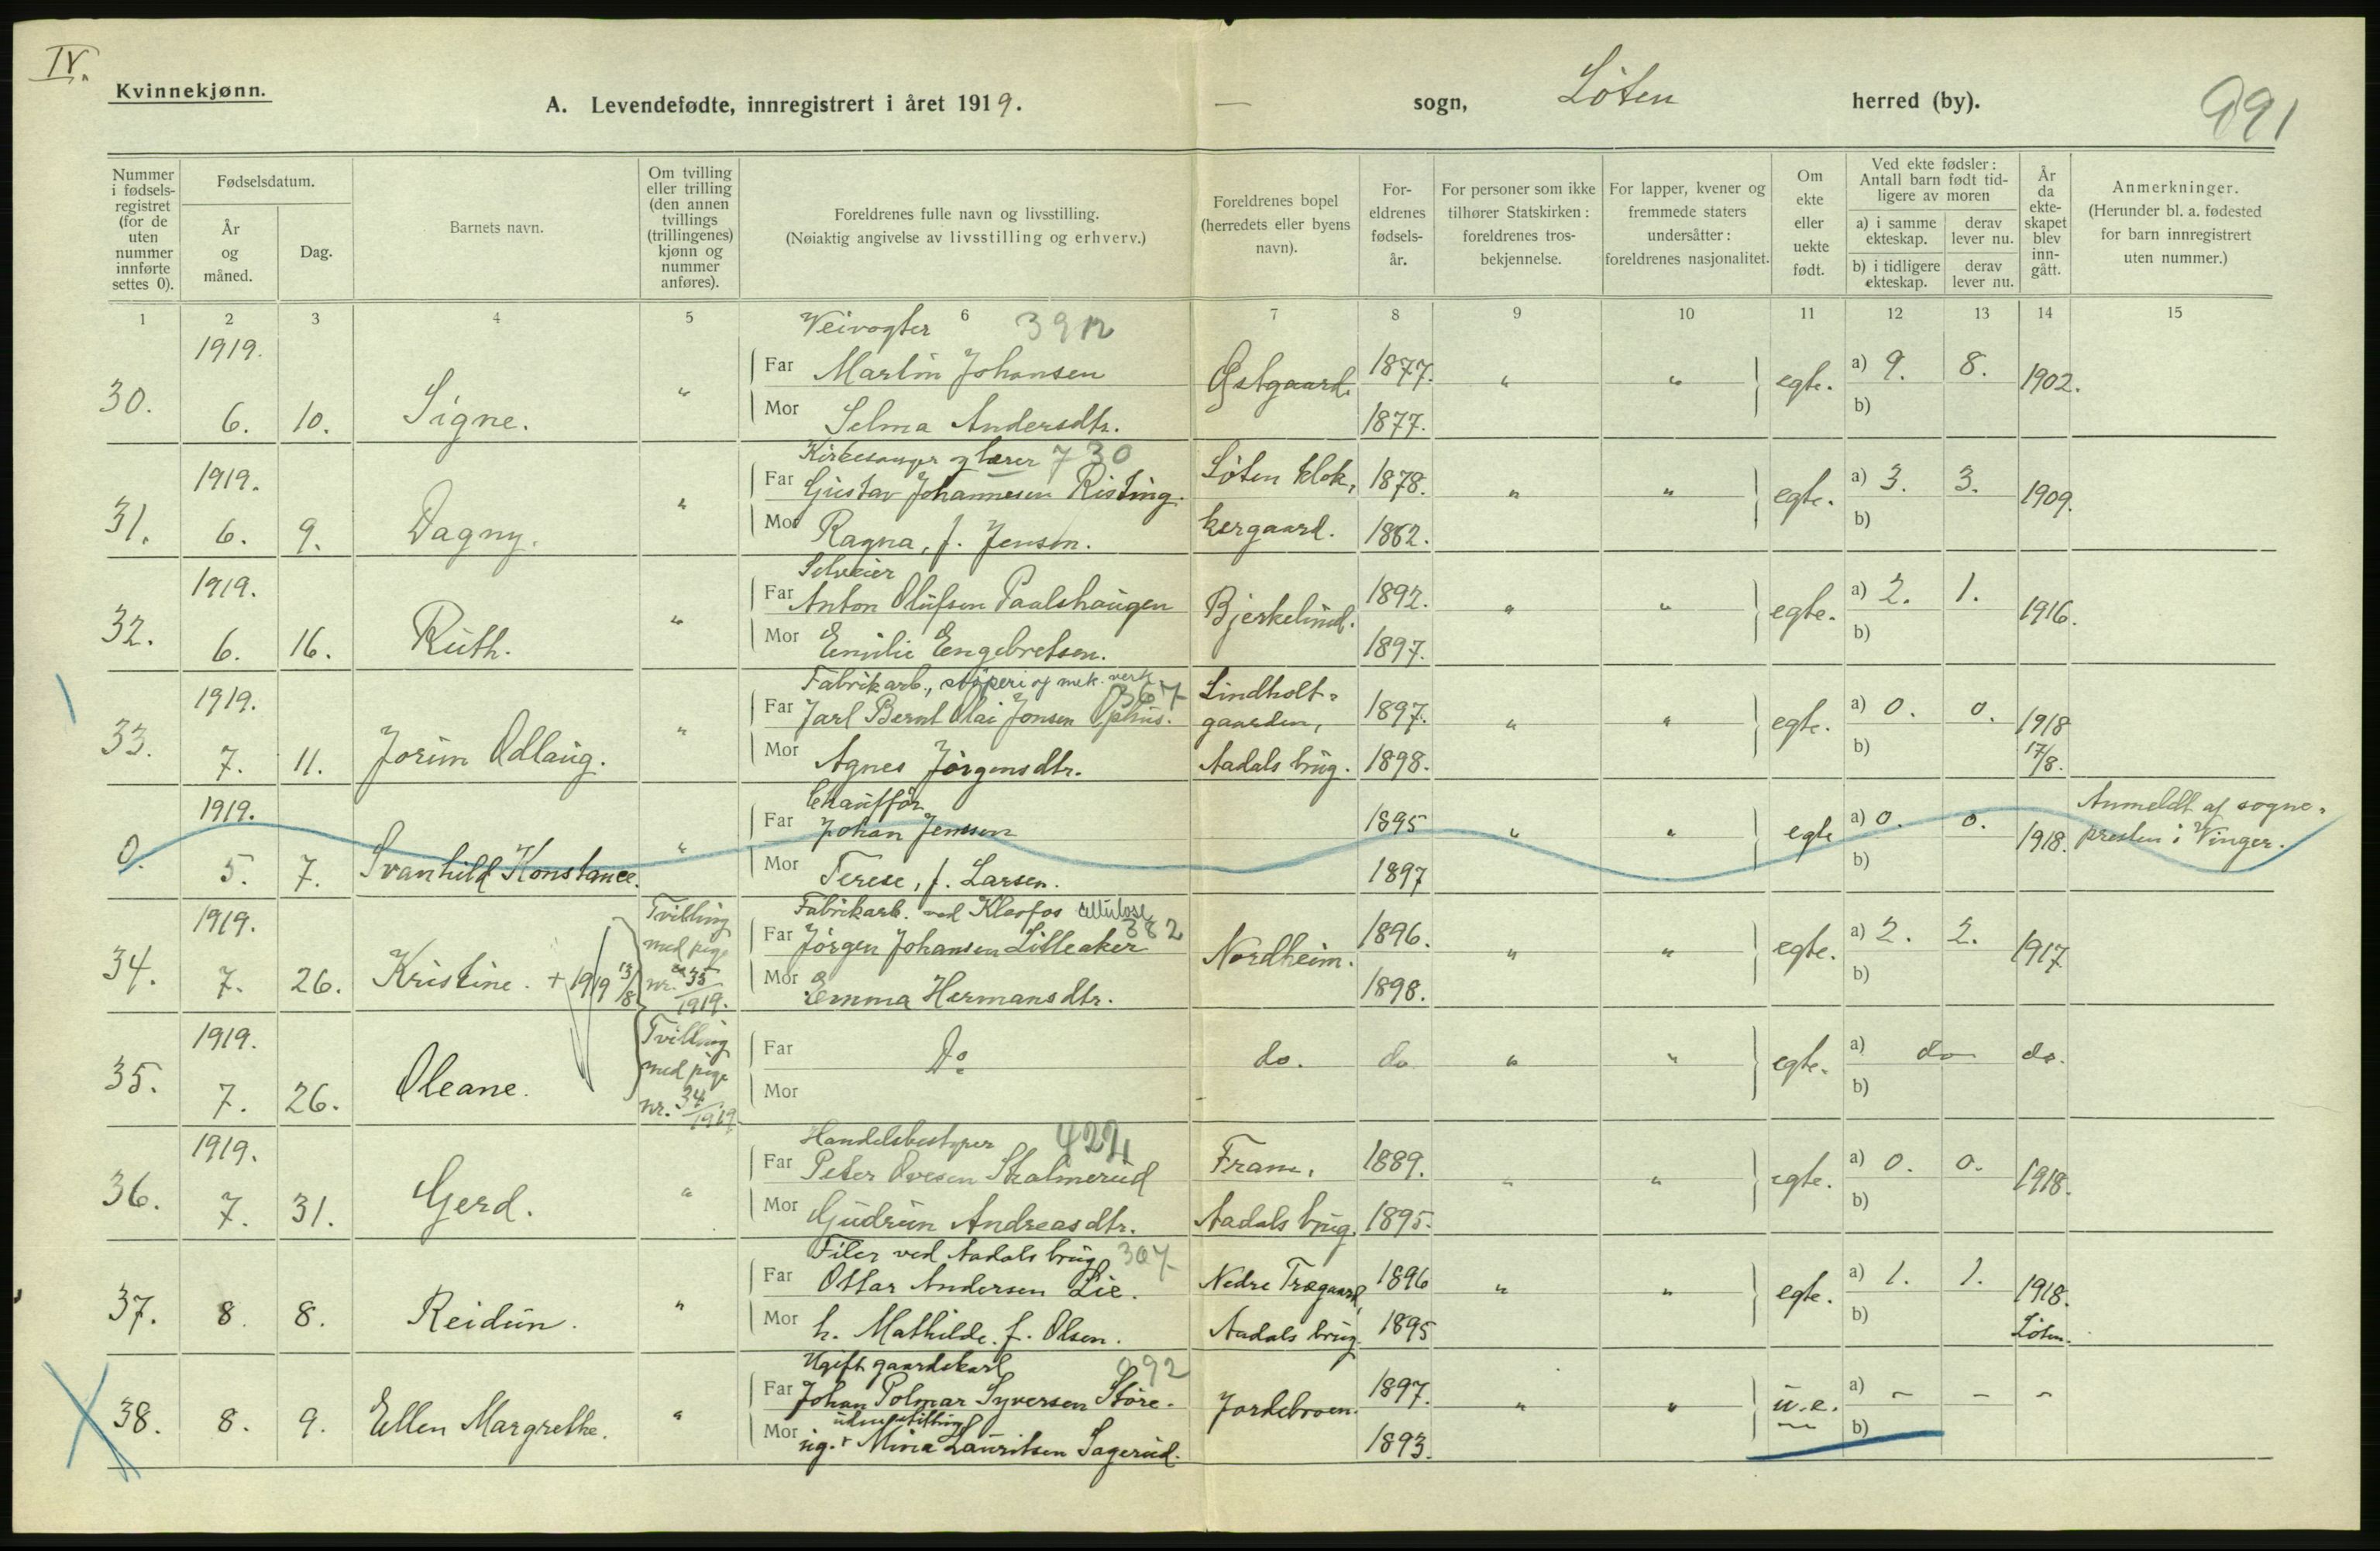 IV.
Kvinnekjønn.
A. Levendefødte, innregistrert i året 1919.
— sogn, Löten herred (by).
991
Nummer i fødselsregistret (for de uten nummer innførte settes 0).
Fødselsdatum.
År og måned.
Dag.
Barnets navn.
Om tvilling eller trilling (den annen tvillings (trillingenes) kjønn og nummer anføres).
Foreldrenes fulle navn og livsstilling.
(Nøiaktig angivelse av livsstilling og erhverv.)
Foreldrenes bopel (herredets eller byens navn).
Foreldrenes fødselsår.
For personer som ikke tilhører Statskirken: foreldrenes trosbekjennelse.
For lapper, kvener og fremmede staters undersåtter: foreldrenes nasjonalitet.
Om ekte eller uekte født.
Ved ekte fødsler: Antall barn født tidligere av moren
a) i samme ekteskap.
derav lever nu.
b) i tidligere ekteskap.
derav lever nu.
År da ekteskapet blev inngått.
Anmerkninger.
(Herunder bl. a. fødested for barn innregistrert uten nummer.)
1 2 3 4 5 6 7 8 9 10 11 12 13 14 15
Veivogter
1919. Far Martin Johansen Østgaard. 1877. " " egte. a) 9. 8. 1902.
30. 6. 10. Signe. " Mor Selma Andersdtr. 1877. b)
Kirkesanger og lærer 730
1919. Far Gustav Johannesen Risting. Löten klok, 1878. " " egte. a) 3. 3. 1909.
31. 6. 9. Dagny. " Mor Ragna, f. Jensen. kergaard. 1882. b)
Selveier
1919. Far Anton Olufsen Paalshaugen Bjerkelund. 1892. " " egte. a) 2. 1. 1916.
32. 6. 16. Ruth. " Mor Emilie Engebretsen. 1897. b)
Fabrikarb., støperi og mek. verk. 367
1919. Far Jarl Bernt Olai Jonsen Ophus. Lindholt-gaarden, 1897. " " egte. a) 0. 0. 1918
33. 7. 11. Jorun Odlaug. " Mor Agnes Jörgensdtr. Aadals brug. 1898. b) 17/8.
Chauffør
1919. Far Johan Jenssen 1895 " " egte a) 0. 0. 1918. Anmeldt af sogne-
0. 5. 7. Svanhild Konstance. " Mor Terese, f. Larsen. 1897 b) presten i Vinger.
Fabrikarb. ved Klevfos cellulose 382
1919. Tvilling med pige nr. 35/1919. Far Jörgen Johansen Lilleaker Nordheim. 1896. " " egte. a) 2. 2. 1917
34. 7. 26. Kristine. + 1919 13/8 Mor Emma Hermansdtr. 1898. b)
1919. Tvilling med pige nr. 34/1919 Far Do. do. do " " egte. a) do do.
35. 7. 26. Oleane. Mor b)
Handelsbestyrer 424
1919. Far Peter Ovesen Skalmerud Fram, 1889. " " egte. a) 0. 0. 1918.
36. 7. 31. Gerd. " Mor Gudrun Andreasdtr. Aadals brug. 1895. b)
Filer ved Aadals brug 307
Far Ottar Andersen Lie. Nedre Trægaard, 1896 " " egte. a) 1. 1. 1918.
37. 8. 8. Reidun. " Mor h. Mathilde. f. Olsen. Aadals brug. 1895 b) Löten.
Ugift gaardskarl 092
Far Johan Polmar Syversen Störe. Jordebroen. 1897. " " u.e. a) - - -
38. 8. 9. Ellen Margrethe. " uden stilling
Mor Mina Lauritsen Sagerud. 1893. b)